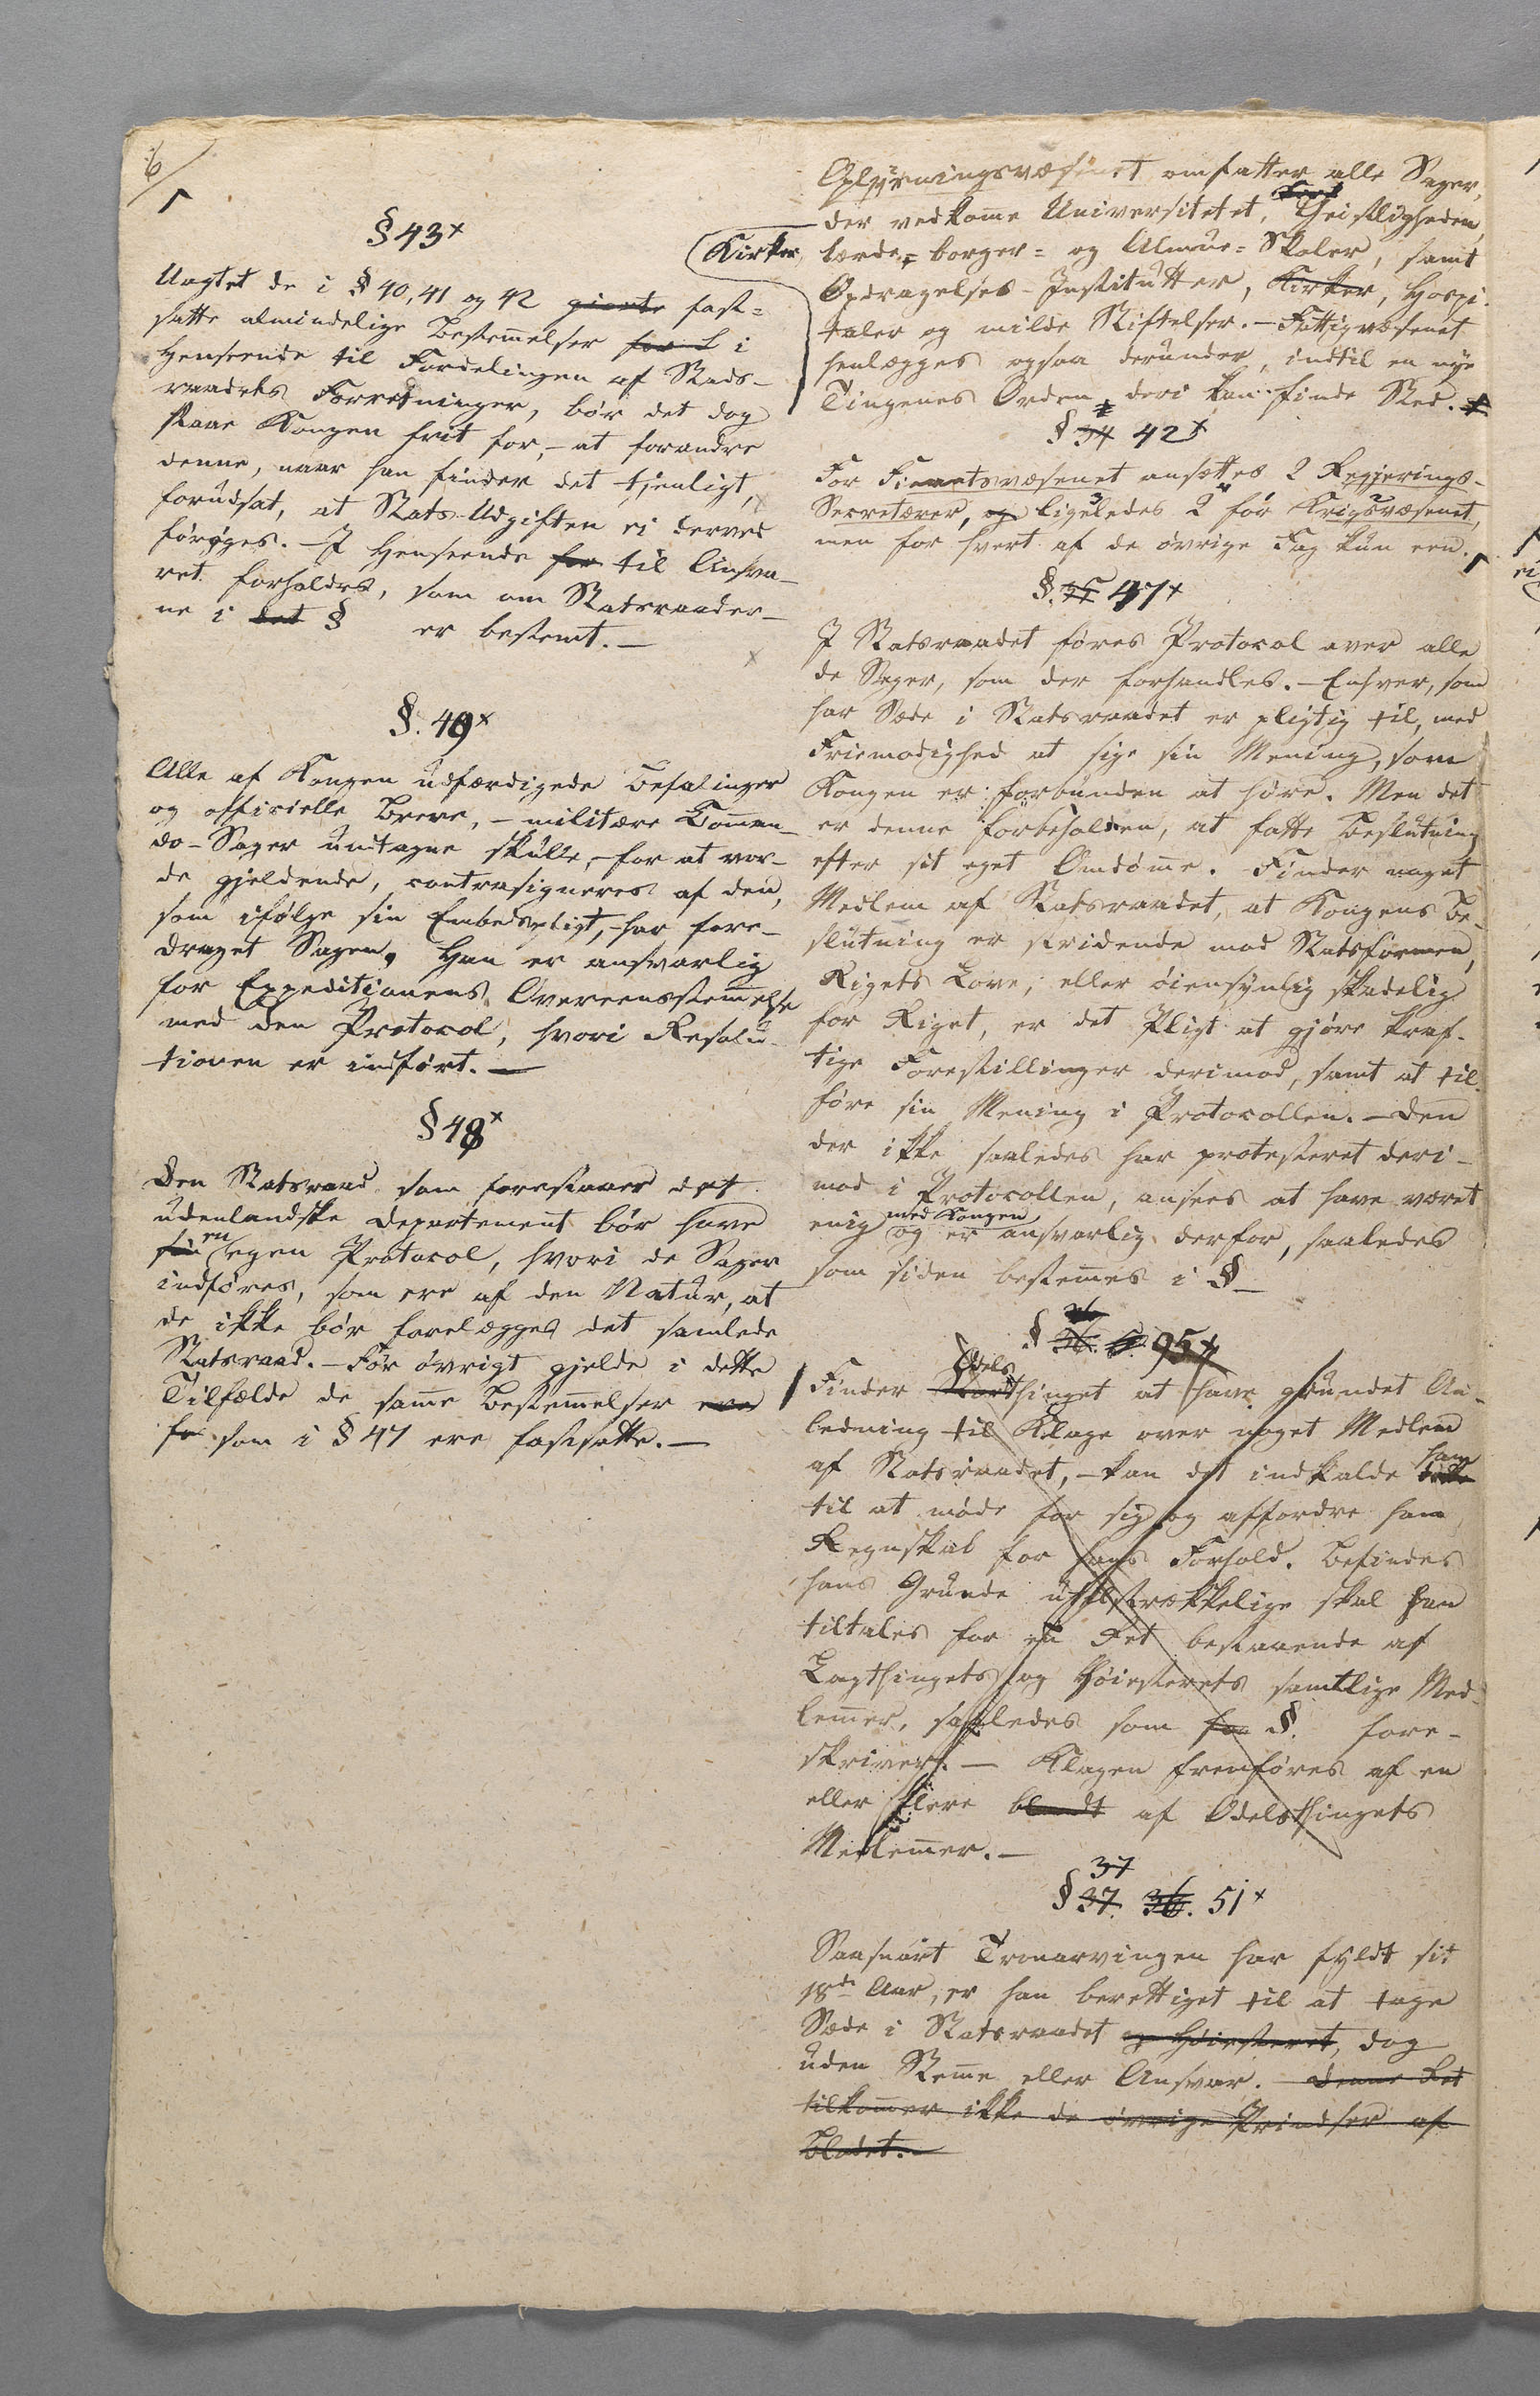 6
§ 43 x
Uagtet de i § 40, 41 og 42 giorte fast=
satte almindelige Bestemelser for S i
Henseende til Fordelingen af Stads-
raadets Forretninger, bør det dog
staae Kongen frit for, - at forandre
denne, naar han finder det tjenligt,
forudsat, at Stats-Udgiften ei derved
forøges. - I Henseende for til Ansva-
ret forholdes, som om Statsraader-
ne i det § er bestemt. -
§. 49 x
Alle af Kongen udfærdigede Befalinger
og officielle Breve, - militære Comman-
do-Sager undtagne skulle, for at vor-
de gjeldende, contrasigneres af den,
som ifølge sin Embedspligt, har fore-
draget Sagen, Han er ansvarlig
for Expeditionens Overeensstemelse
med den Protocol, hvori Resolu-
tionen er indført. -
§ 48 x
Den Statsraad som forestaaer det
udenlandske Departement bør have
sin en egen Protocol, hvori de Sager
indføres, som ere af den Natur, at
de ikke bør forelægges det samlede
Statsraad. - For øvrigt gjelde i dette
Tilfælde de same Bestemelser ere
fa som i § 47 ere fastsatte. -
Oplysningsvæsenet omfatter alle Sager,
der vedkome Universitetet, Geistligheden,
Kirker, lærde= borger= og Almue= Skoler, samt
Opdragelses-Institutter, Kirker, Hospi-
taler og milde Stiftelser. - Fattigvæsenet
henlægges ogsaa derunder, indtil en nye
Tingenes Orden deri kan finde Sted.
§ 34 42 x
For Finantsvæsenet ansættes 2 Regjerings-
Secretærer, og ligeledes 2 for Krigsvæsenet,
men for hvert af de øvrige Fag kun een.
§. 35 47 x
I Statsraadet føres Protocol over alle
de Sager, som der forhandles. - Enhver, som
har Sæde i Statsraadet er pligtig til, med
Friemodighed at sige sin Mening, som
Kongen er forbunden at høre. Men det
er denne forbeholden, at fatte Beslutning
efter sit eget Omdøme. Finder noget
Medlem af Statsraadet, at Kongens Be-
slutning er stridende mod Statsformen,
Rigets Love, eller øiensynlig skadelig
for Riget, er det Pligt at gjøre kraf-
tige Forestillinger derimod, samt at til-
føre sin Mening i Protocollen. - Den
der ikke saaledes har protesteret deri-
mod i Protocollen, ansees at have været
enig med Kongen og er ansvarlig derfor, saaledes
som siden bestemes i § -
§ 36. 95 x
Finder Storthinget Odels at have grundet An-
ledning til Klage over noget Medlem
af Statsraadet, - kan det indkalde dette ham
til at møde for sig og affordre ham
Regnskab for hans Forhold. Befindes
hans Grunde utilstrækkelige skal han
tiltales for en Ret bestaaende af
Lagthingets og Høiesterets samtlige Med-
lemer, saaledes som for §. fore-
skriver. - Klagen fremføres af en
eller flere blandt af Odelsthingets
Medlemer. -
37
§ 37. 36. 51 x
Saasnart Tronarvingen har fyldt sit
18de Aar, er han berettiget til at tage
Sæde i Statsraadet og Høiesteret, dog
uden Steme eller Ansvar. - Denne Ret
tilkomer ikke de øvrige Prindser af
Blodet. -